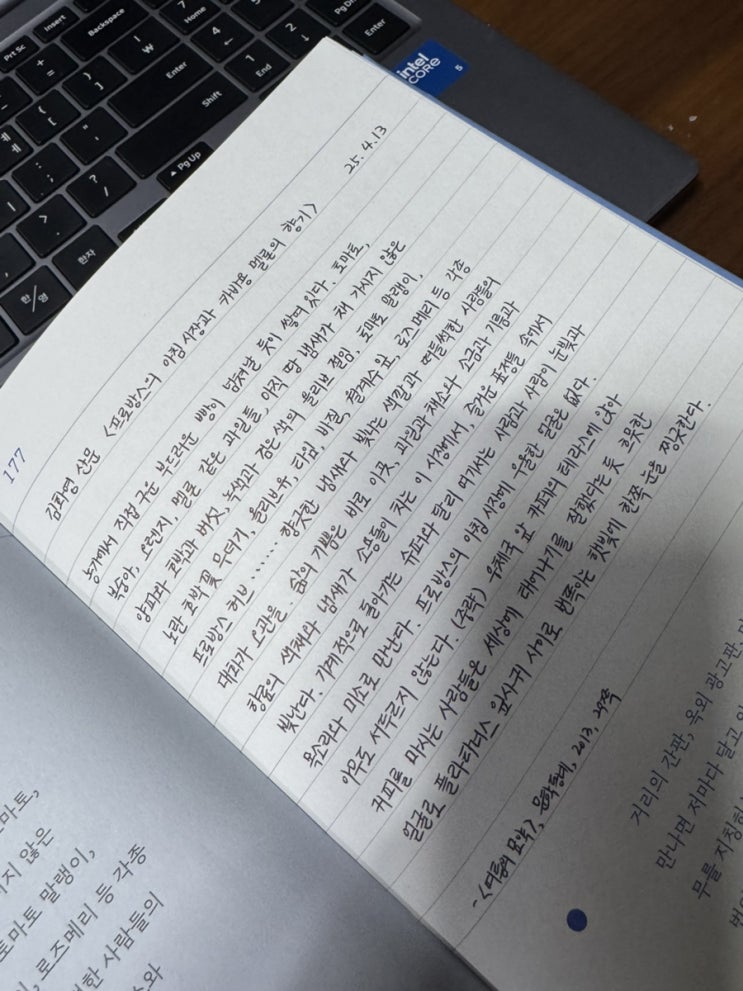 Prt Sc
Insert
Backspace
7
Home
PgUp
PgDn
+
=
|
₩
\
Enter
4
←
5
1
End
2
↓
Enter
{
[
}
]
ㅔ
:
;
"
'
Shift
>
.
?
/
▲ Pg Up
한자
한/영
intel
CORE
5
177
25. 4. 13
김화영 산문 <프로방스의 아침 시장과 카바용 멜론의 향기>
농가에서 직접 구운 부드러운 빵이 넘쳐날 듯이 쌓여 있다. 토마토,
복숭아, 오렌지, 멜론 같은 과일들, 아직 땅 냄새가 채 가시지 않은
양파와 호박과 버섯, 녹색과 검은 색의 올리브 절임, 토마토 말랭이,
노란 호박꽃 무더기, 올리브유, 타임, 바질, 월계수 잎, 로즈메리 등 각종
프로방스 허브...... 향긋한 냄새와 빛나는 색깔과 떠들썩한 사람들의
대화가 오관을. 삶의 기쁨은 바로 이것, 과일과 채소와 소금과 기름과
향료의 색채와 냄새가 소용돌이 치는 이 시장에서, 즐거운 표정들 속에서
빛난다. 기계적으로 돌아가는 슈퍼와 달리 여기서는 사람과 사람이 눈빛과
목소리와 미소로 만난다. 프로방스의 아침 시장에 우울한 얼굴은 없다.
아무도 서두르지 않는다. (중략) 우체국 앞 카페의 테라스에 앉아
커피를 마시는 사람들은 세상에 태어나기를 잘했다는 듯 흐뭇한
얼굴로 플라타너스 잎사귀 사이로 번쩍이는 햇빛에 한쪽 눈을 찡긋한다.
- <여름의 묘약>, 문학동네, 2013, 29쪽
토마토,
지 않은
토마토 말랭이,
, 로즈메리 등 각종
한 사람들의
와
거리의 간판, 옥외 광고판,
만나면 저마다 달고 있
무를 지칭하